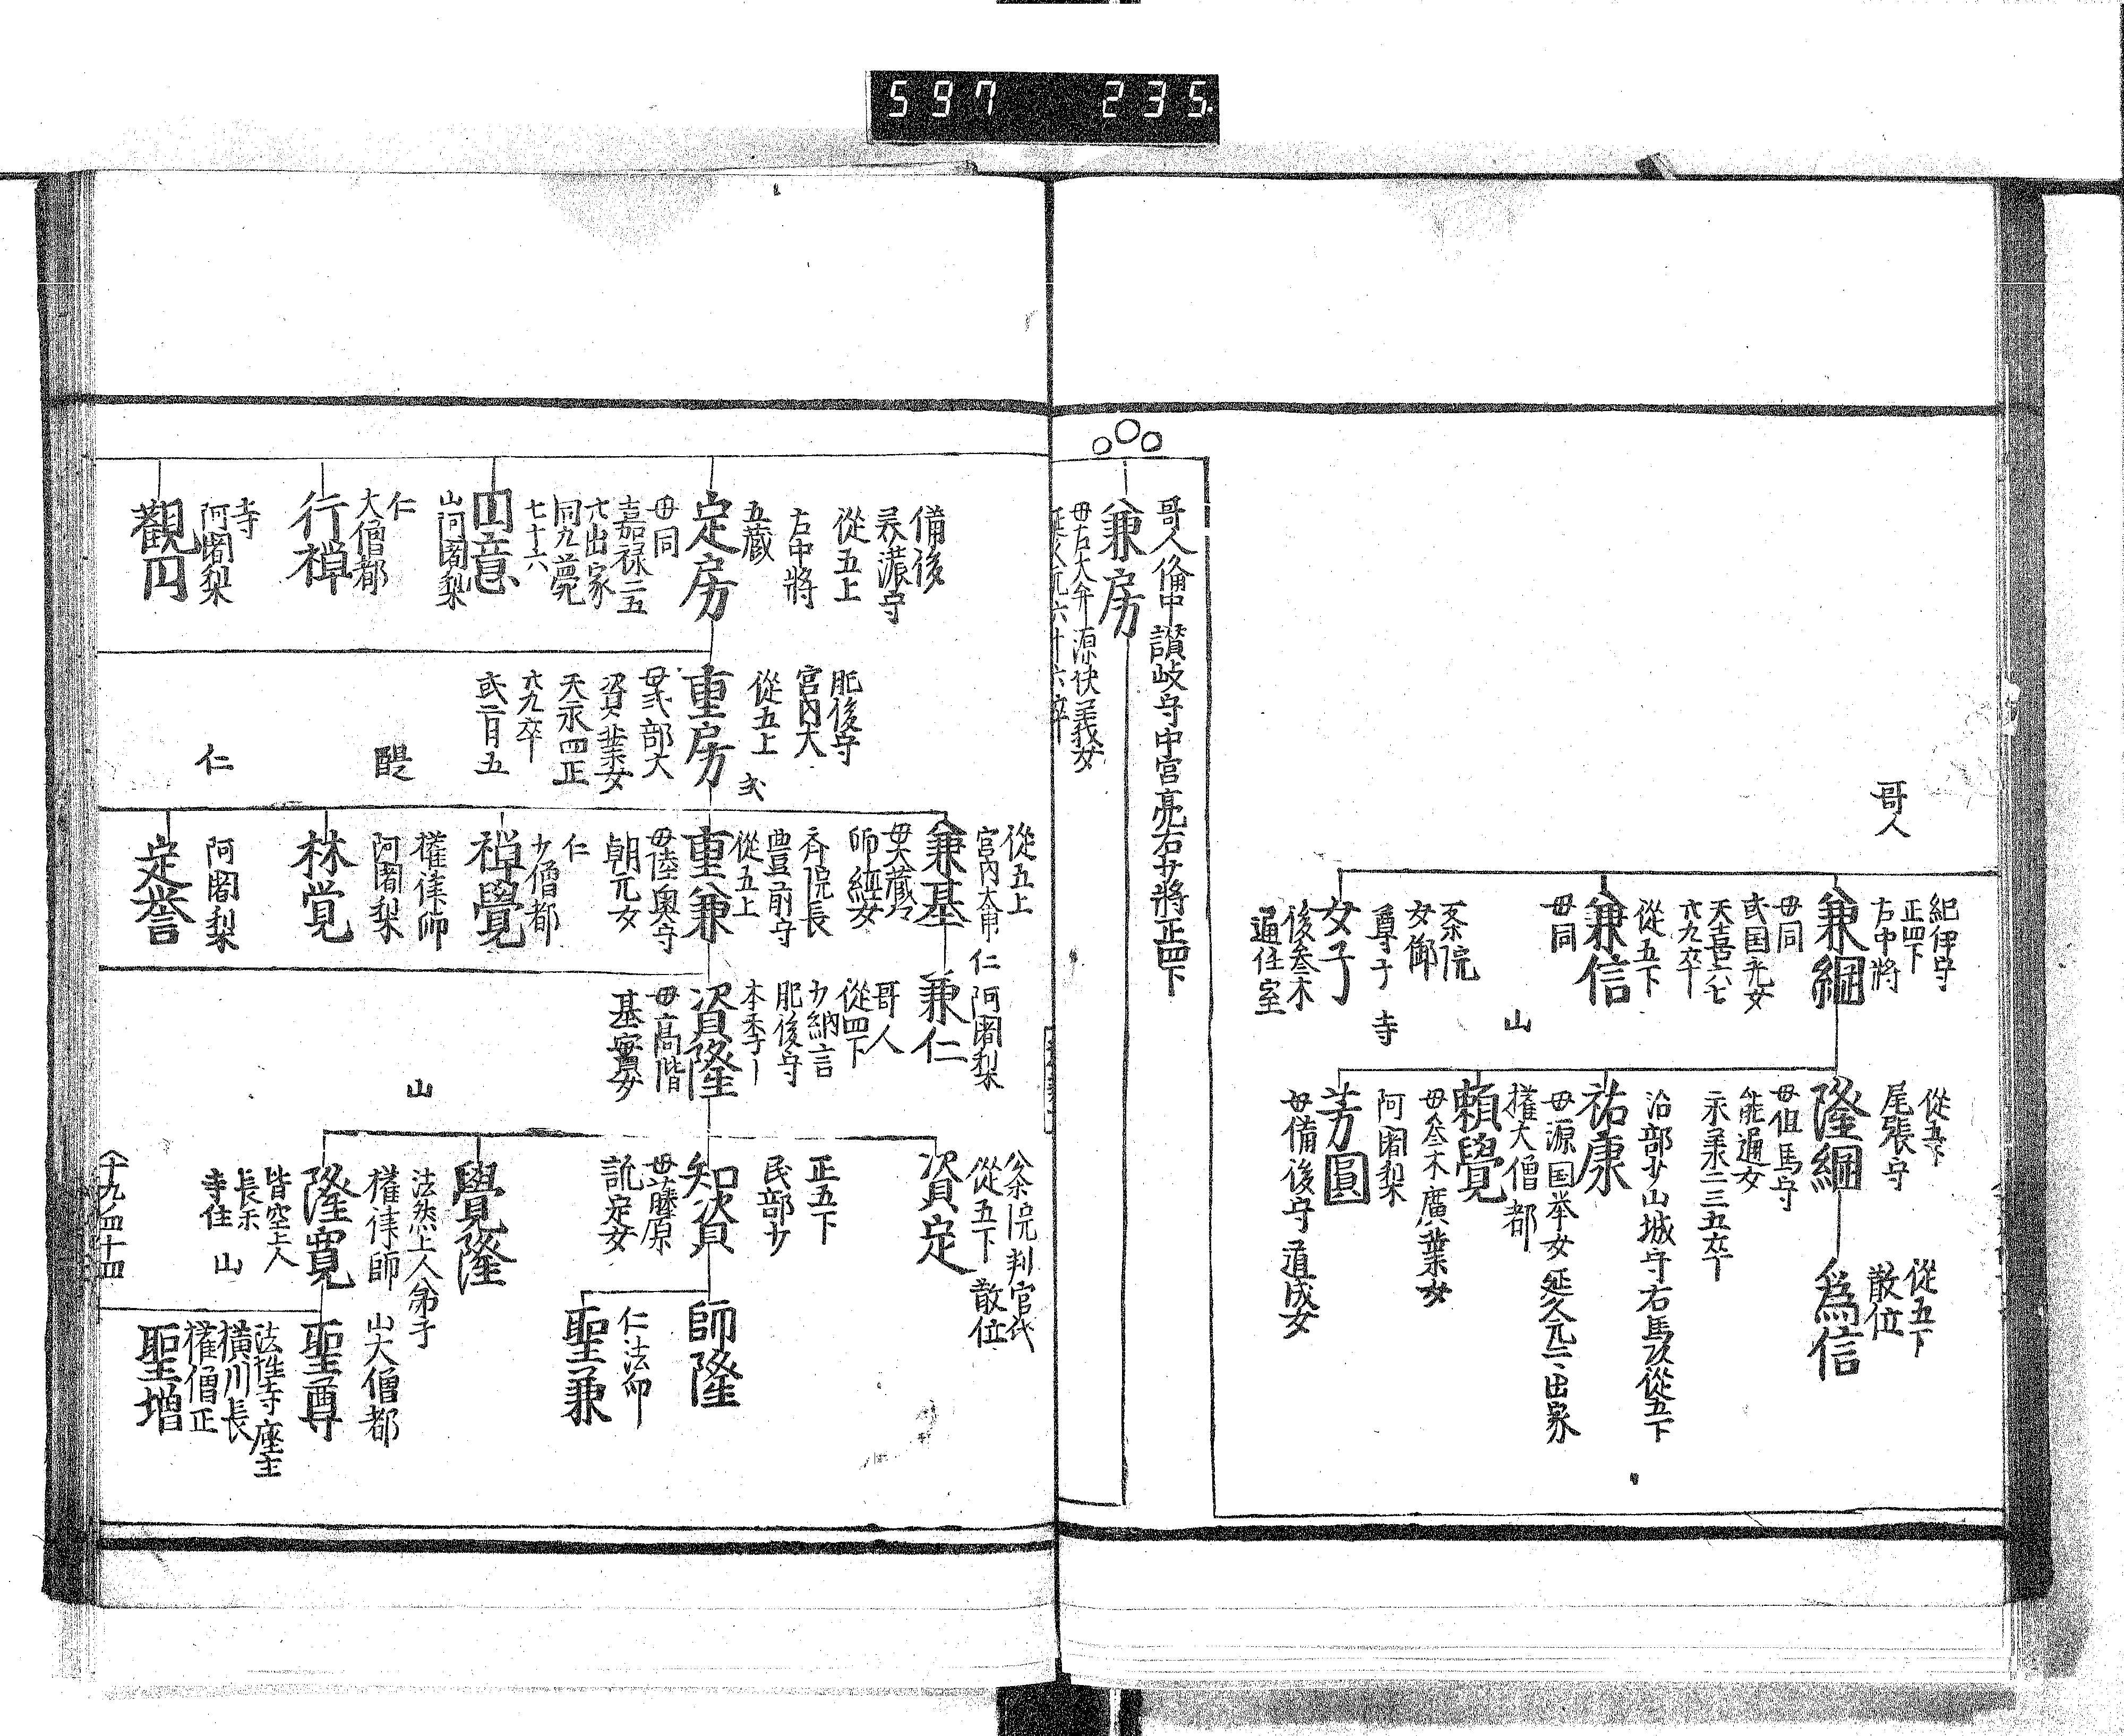 597 235
哥人
紀伊守
正四下
右中將
兼綱
母同
弐国光女
天喜六七
六九卒
從五下
兼信
母同
一条院
女御
尊子
女子
後参木
通任室
從五下
尾張守
隆綱
母但馬守
能通女
永承二三五卒
從五下
散位
爲信
治部少山城守右馬頭從五下
祐康
母源国挙女延久元二出家
山
權大僧都
頼覺
母参木廣業女
寺
阿闍梨
芳圓
母備後守道成女
哥人備中讃岐守中宮亮右少將正四下
兼房
母右大弁源扶義女
延久元六廿六卒
備後
美濃守
從五上
右中將
五蔵
定房
母同
嘉禄二五
六出家
同九薨
七十六
円意
山阿闍梨
仁
大僧都
行禅
寺
阿闍梨
觀円
肥後守
宮内大
從五上
重房
母弐部大
資業女
天永四正
六九卒
或二月五
從五上
宮内大甫
兼基
母大蔵
師経女
斉院長
豊前守
從五上
重兼
母陸奥守
朝元女
仁
少僧都
禅覺
醍
權律師
阿闍梨
林覚
仁
阿闍梨
定誉
仁阿闍梨
兼仁
哥人
從四下
少納言
肥後守
本季
資隆
母高階
基實女
公条院判官代
從五下散位
資定
正五下
民部少
知資
母藤原
訛定女
師隆
仁法印
聖兼
覺隆
山
法然上人弟子
權律師
隆寛
皆空上人
長楽
寺住
山大僧都
聖尊
法性寺座主
横川長
權僧正
山
聖増
十九ノ四十四